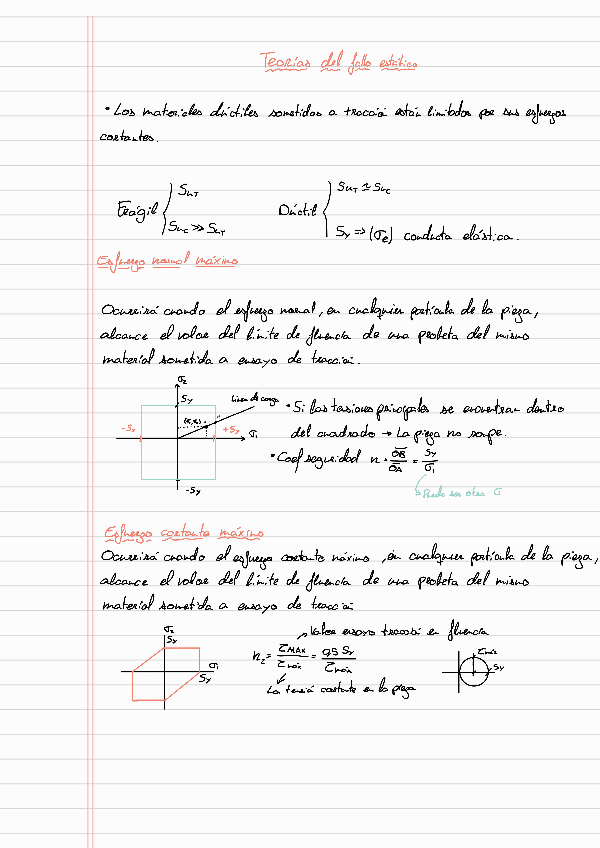 Teorías del fallo estático
• Los materiales dúctiles sometidos a tracción están limitados por sus esfuerzos
cortantes.
Frágil { Sut
Suc >> Sut
Dúctil { Sut ≃ Suc
Sy ⇒ (σe) conducta elástica.
Esfuerzo normal máximo
Ocurrirá cuando el esfuerzo normal, en cualquier partícula de la pieza,
alcance el valor del límite de fluencia de una probeta del mismo
material sometida a ensayo de tracción.
σ2
Sy
Línea de carga
-Sy
(σ1,σ2)
+Sy
σ1
-Sy
• Si las tensiones principales se encuentran dentro
del cuadrado → La pieza no rompe.
• Coef seguridad n = OB/OA = Sy/σ1
↳ Puede ser otra σ
Esfuerzo cortante máximo
Ocurrirá cuando el esfuerzo cortante máximo, en cualquier partícula de la pieza,
alcance el valor del límite de fluencia de una probeta del mismo
material sometida a ensayo de tracción
σ2
Sy
σ1
Sy
Valor ensayo tracción en fluencia
n2 = τMAX/τmáx = 0,5 Sy/τmáx
La tensión cortante en la pieza
τmáx
Sy